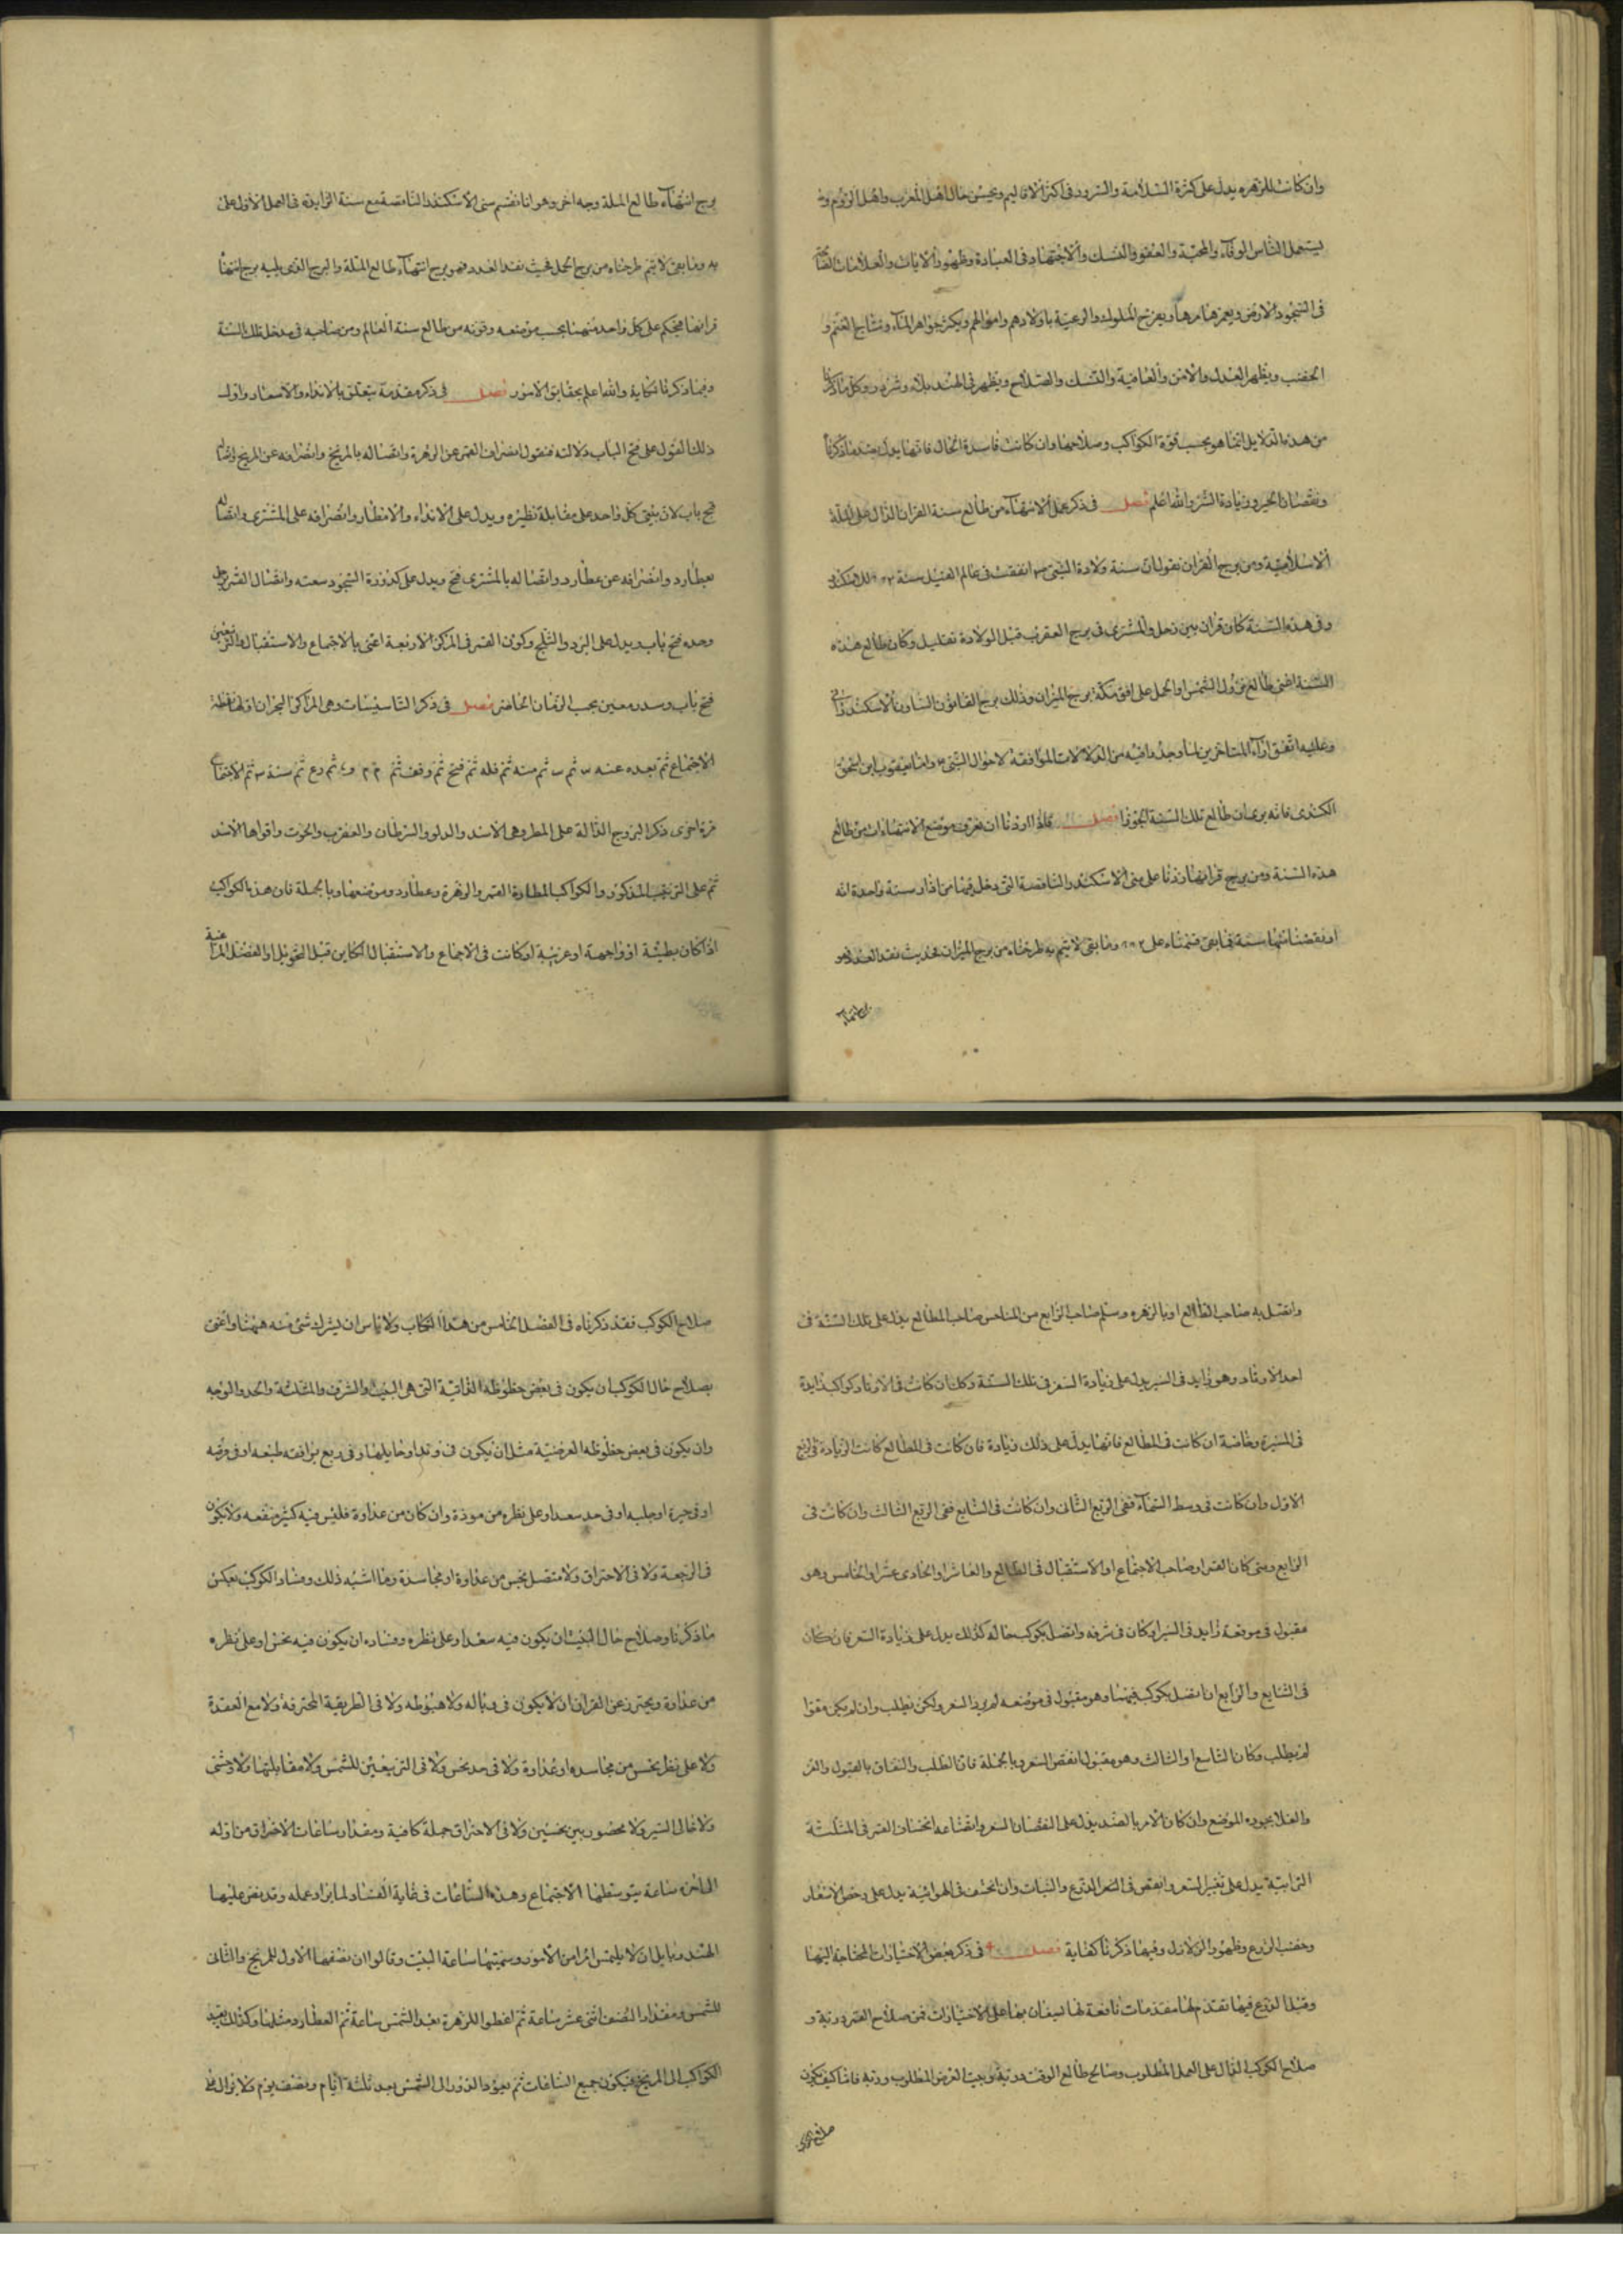 وان كانت للزهره يدل على كثرة السلامة والسرور فى اكثر الاقاليم ويحسن حال اهل المغرب واهل الروم و
يستعمل الناس الوفاء والمحبة والعفو والنسك والاجتهاد فى العبادة وظهور الايات والعلامات
فى النجوم والارض ويعمرها اهلها ويفرح الملوك والرعية باولادهم واموالهم ويكثر جواهر الماء ونتايج الغنم و
الخصب ويظهر العدل والامن والعافية والنسك والصلاح ويظهر فى الهند بلاء وشرور وكل ما ذكرنا
من هذه الدلايل انما هو بحسب قوة الكواكب وصلاحها وان كانت فاسدة الحال فانها يدل بضد ما ذكرنا
ونقصان الخير وزيادة الشر والله اعلم فصل فى ذكر عمل الانتهاء من طالع سنة القران الدال على الملة
الاسلامية ومن برج القران نقول ان سنة ولادة النبى اتفقت فى عالم الفيل سنة للاسكندر
وفى هذه السنة كان قران بين زحل والمشترى فى برج العقرب قبل الولادة بقليل وكان طالع هذه
السنة اعنى طالع نزول الشمس اول الحمل على افق مكة برج الميزان وذلك برج القانون
وعليه اتفق اراء المتاخرين لما وجدوا فيه من الدلالات الموافقة لاحوال النبى واما يعقوب ابن اسحق
الكندى فانه يرى ان طالع تلك السنة الجوزا فصل فاذا اردنا ان نعرف موضع الانتهاءات من طالع
هذه السنة ومن برج قرانها زدنا على سنى الاسكندر الناقصة التى دخل فيها من اذار سنة واحدة انه
او نقصنا منها سنة فما بقى قسمناه على وما بقى لا يتم به طرحناه من برج الميزان فحيث نفد العدد فهو
برج انتهاء
برج انتهاء طالع الملة وجه اخر وهو انا نقسم سنى الاسكندر الناقصة مع سنة الزايدة فى العمل الاول على
يه وما بقى لا يتم طرحناه من برج الحمل فحيث نفد العدد فهو برج انتهاء طالع الملة والبرج الذى يليه برج انتها
قرانها فيحكم على كل واحد منهما بحسب موضعه وقوته من طالع سنة العالم ومن صاحبه فى مدخل تلك السنة
وفيما ذكرنا كفاية والله اعلم بحقايق الامور فصل فى ذكر مقدمة يتعلق بالانداء والاسعار واول
ذلك القول على فتح الباب دلالته فنقول انصراف القمر عن الزهرة واتصاله بالمريخ وانصرافه عن المريخ
فتح باب لان بيتى كل واحد على مقابلة نظيره ويدل على الانداء والامطار وانصرافه على المشترى واتصاله
بعطارد وانصرافه عن عطارد واتصاله بالمشترى فتح ويدل على كدورة النجوم سعته واتصال القمر بزحل
وحده فتح باب ويدل على البرد والثلج وكون القمر فى المركز الاربعة اعنى بالاجتماع والاستقبال والتربيعين
فتح باب وسدد معين بحسب الزمان الحاضر فصل فى ذكر التاسيسات وهى المراكز البحران
الاجتماع ثم بعده عنه ثم ثم ثم ثم فتح ثم وقف ثم ثم ثم ثم الاجتماع
مرة اخرى ذكر البروج الدالة على المطر وهى الاسد والدلو والسرطان والعقرب والحوت واقواها الاسد
ثم على الترتيب المذكور والكواكب المطارة القمر والزهرة وعطارد وموضعها وبالجملة فان هذه الكواكب
اذا كان بطيئة او واجهة او غربية او كانت فى الاجتماع والاستقبال الكاين قبل التحويل او الفصل
واتصل به صاحب الطالع او بالزهره وسلم صاحب الرابع من المناحس صاحب الطالع يدل على تلك السنة فى
احد الاوتاد وهو زايد فى السير يدل على زيادة السعر فى تلك السنة وكل ان كانت فى الاوتاد كواكب زايدة
فى السير وخاصة ان كانت فى الطالع فانها يدل على ذلك زيادة فان كانت فى الطالع كانت الزيادة فى الربع
الاول وان كانت فى وسط السماء ففى الربع الثانى وان كانت فى السابع ففى الربع الثالث وان كانت فى
الرابع ومتى كان القمر او صاحب الاجتماع او الاستقبال فى الطالع والعاشر او الحادى عشر او الخامس وهو
مقبول فى موقعه زايد فى السير او كان فى شرفه واتصل بكوكب حاله كذلك يدل على زيادة السعر فان كان
فى السابع والرابع ان اتصل بكوكب فيهما وهو مقبول فى موضعه لم يزد السعر ولكن يطلب وان لم يكن مقبولا
لم يطلب وكان التاسع او الثالث وهو مقبول انتقص السعر وبالجملة فان الطلب والنفاق بالقبول والعز
والغلا بجوده الموضع وان كان الامر بالضد يدل على النقصان السعر واتضاعه انخسان القمر فى المثلثة
الترابية يدل على تغير السعر وانقص فى الثمر الزرع والنبات وان انخسف فى الهوائية يدل على رخص الاسعار
وخصب الزرع وظهور الزلازل وفيها ذكرنا كفاية فصل فى ذكر بعض الاختيارات المحتاجة اليها
وقبل الشروع فيها تقدم لها مقدمات نافعة لها ليعان بها على الاختيارات فمن صلاح القمر وربة و
صلاح الكوكب الدال على العمل المطلوب وصالح طالع الوقت وربه وبيت الغرض المطلوب وربه فاما كيف يكون
صلاح الكوكب
صلاح الكوكب فقد ذكرناه فى الفصل الخامس من هذا الكتاب ولا باس ان يشرك شئ منه ههنا واعنى
بصلاح حال الكوكب ان يكون فى بعض حظوظه الذاتية التى هى البيت والشرف والمثلثة والحد والوجه
وان يكون فى بعض حظوظه العرضية مثل ان يكون فى وتد او ما يليها وفى ربع يوافقه طبعه او فى فرحه
او فى حيزه او جلبه او فى حد سعد او على نظره من مودة وان كان من عداوة فليس فيه كثير منفعه ولا يكون
فى الرجعة ولا فى الاحتراق ولا متصل بنحس من عداوة او مجاسدة وما اشبه ذلك وفساد الكوكب بعكس
ما ذكرنا وصلاح حال البيت ان يكون فيه سعد او على نظره وفساده ان يكون فيه نحس او على نظره
من عداوة ويحترز عن القران ان لا يكون فى وباله ولا هبوطه ولا فى الطريقة المحترقة ولا مع العقدة
ولا على نظر نحس من مجاسده او عداوة ولا فى حد نحس ولا فى التربيعين للشمس ولا مقابلتها ولا وحشى
ولا خالى السير ولا محصور بين نحسين ولا فى الاحتراق جملة كافية ومقدار ساعات الاحتراق من اوله
الى اخره ساعة يتوسطها الاجتماع وهذه الساعات فى غاية الفساد لما يراد عمله وقد نص عليها
الهند وبابل ان لا يلتمس امرا من الامور وسميتها ساعة البيت وقالوا ان نصفها الاول للمريخ والثانى
للشمس ومقدار النصف اثنى عشر ساعة ثم اعطوا للزهرة بعد الشمس ساعة ثم العطارد مثلها وكذلك بقية
الكواكب الى المريخ فيكون جميع الساعات ثم يعود الدور الى الشمس بعد ثلثة ايام ونصف يوم ولا يزال